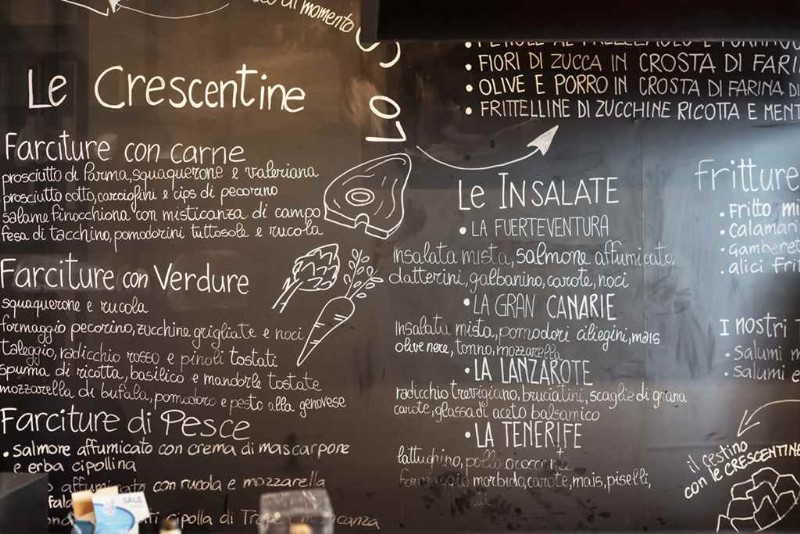 di momento
Le Crescentine
Farciture con carne
prosciutto di Parma, squaquerone e valeriana
prosciutto cotto, carciofini e cips di pecorino
salame finocchiona con misticanza di campo
fesa di tacchino, pomodorini tuttosole e rucola
Farciture con Verdure
squaquerone e rucola
formaggio pecorino, zucchine grigliate e noci
taleggio, radicchio rosso e pinoli tostati
spuma di ricotta, basilico e mandorle tostate
mozzarella di bufala, pomodoro e pesto alla genovese
Farciture di Pesce
• salmone affumicato con crema di mascarpone
e erba cipollina
affumicato con rucola e mozzarella
cipolla di
LO
• FIORI DI ZUCCA IN CROSTA DI FARI
• OLIVE E PORRO IN CROSTA DI FARINA DI
• FRITTELLINE DI ZUCCHINE RICOTTA E MENT
Le INSALATE
• LA FUERTEVENTURA
insalata mista, salmone affumicato,
datterini, galbanino, carote, noci
• LA GRAN CANARIE
insalata mista, pomodori ciliegini, mais
olive nere, tonno, mozzarella
• LA LANZAROTE
radicchio trevigiano, bruciatini, scaglie di grana
carote, glassa di aceto balsamico
• LA TENERIFE
lattughino, pollo croccante
formaggio morbido, carote, mais, piselli,
fritture
• Fritto mi
• Calamar
• Gamberet
• alici frit
I nostri T
• Salumi m
• Salumi e
il cestino
con le CRESCENTINE